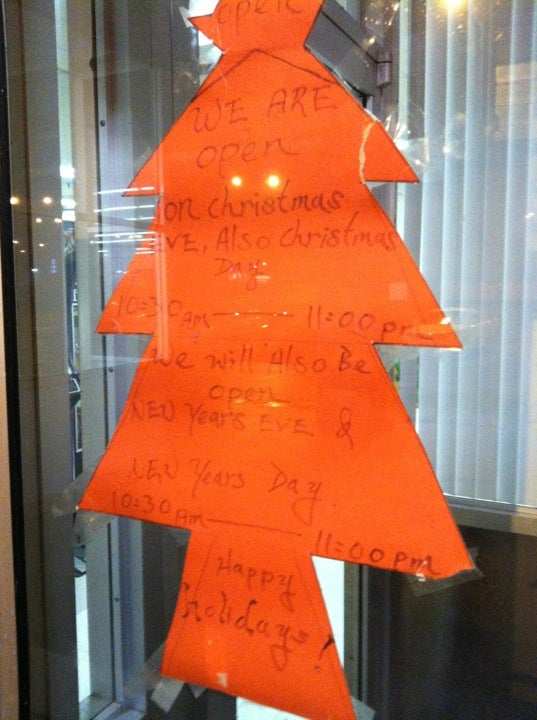 open
WE ARE
open
on christmas
EVE, Also christmas
Day
10:30 AM — 11:00 pm
We will Also Be
open
NEW Years EVE &
NEW Years Day.
10:30 AM — 11:00 pm
Happy
holidays!